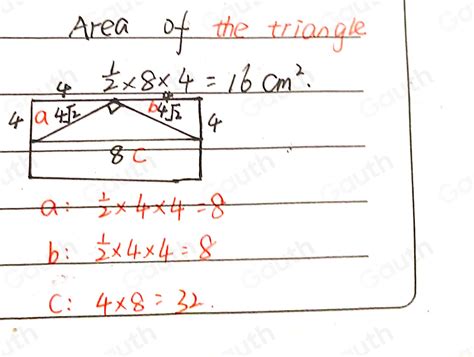 Area of the triangle
½×8×4=16 cm².
4 4
4 a 4√2 b 4√2 4
8 C
a: ½×4×4=8
b: ½×4×4=8
C: 4×8=32.
Gauth